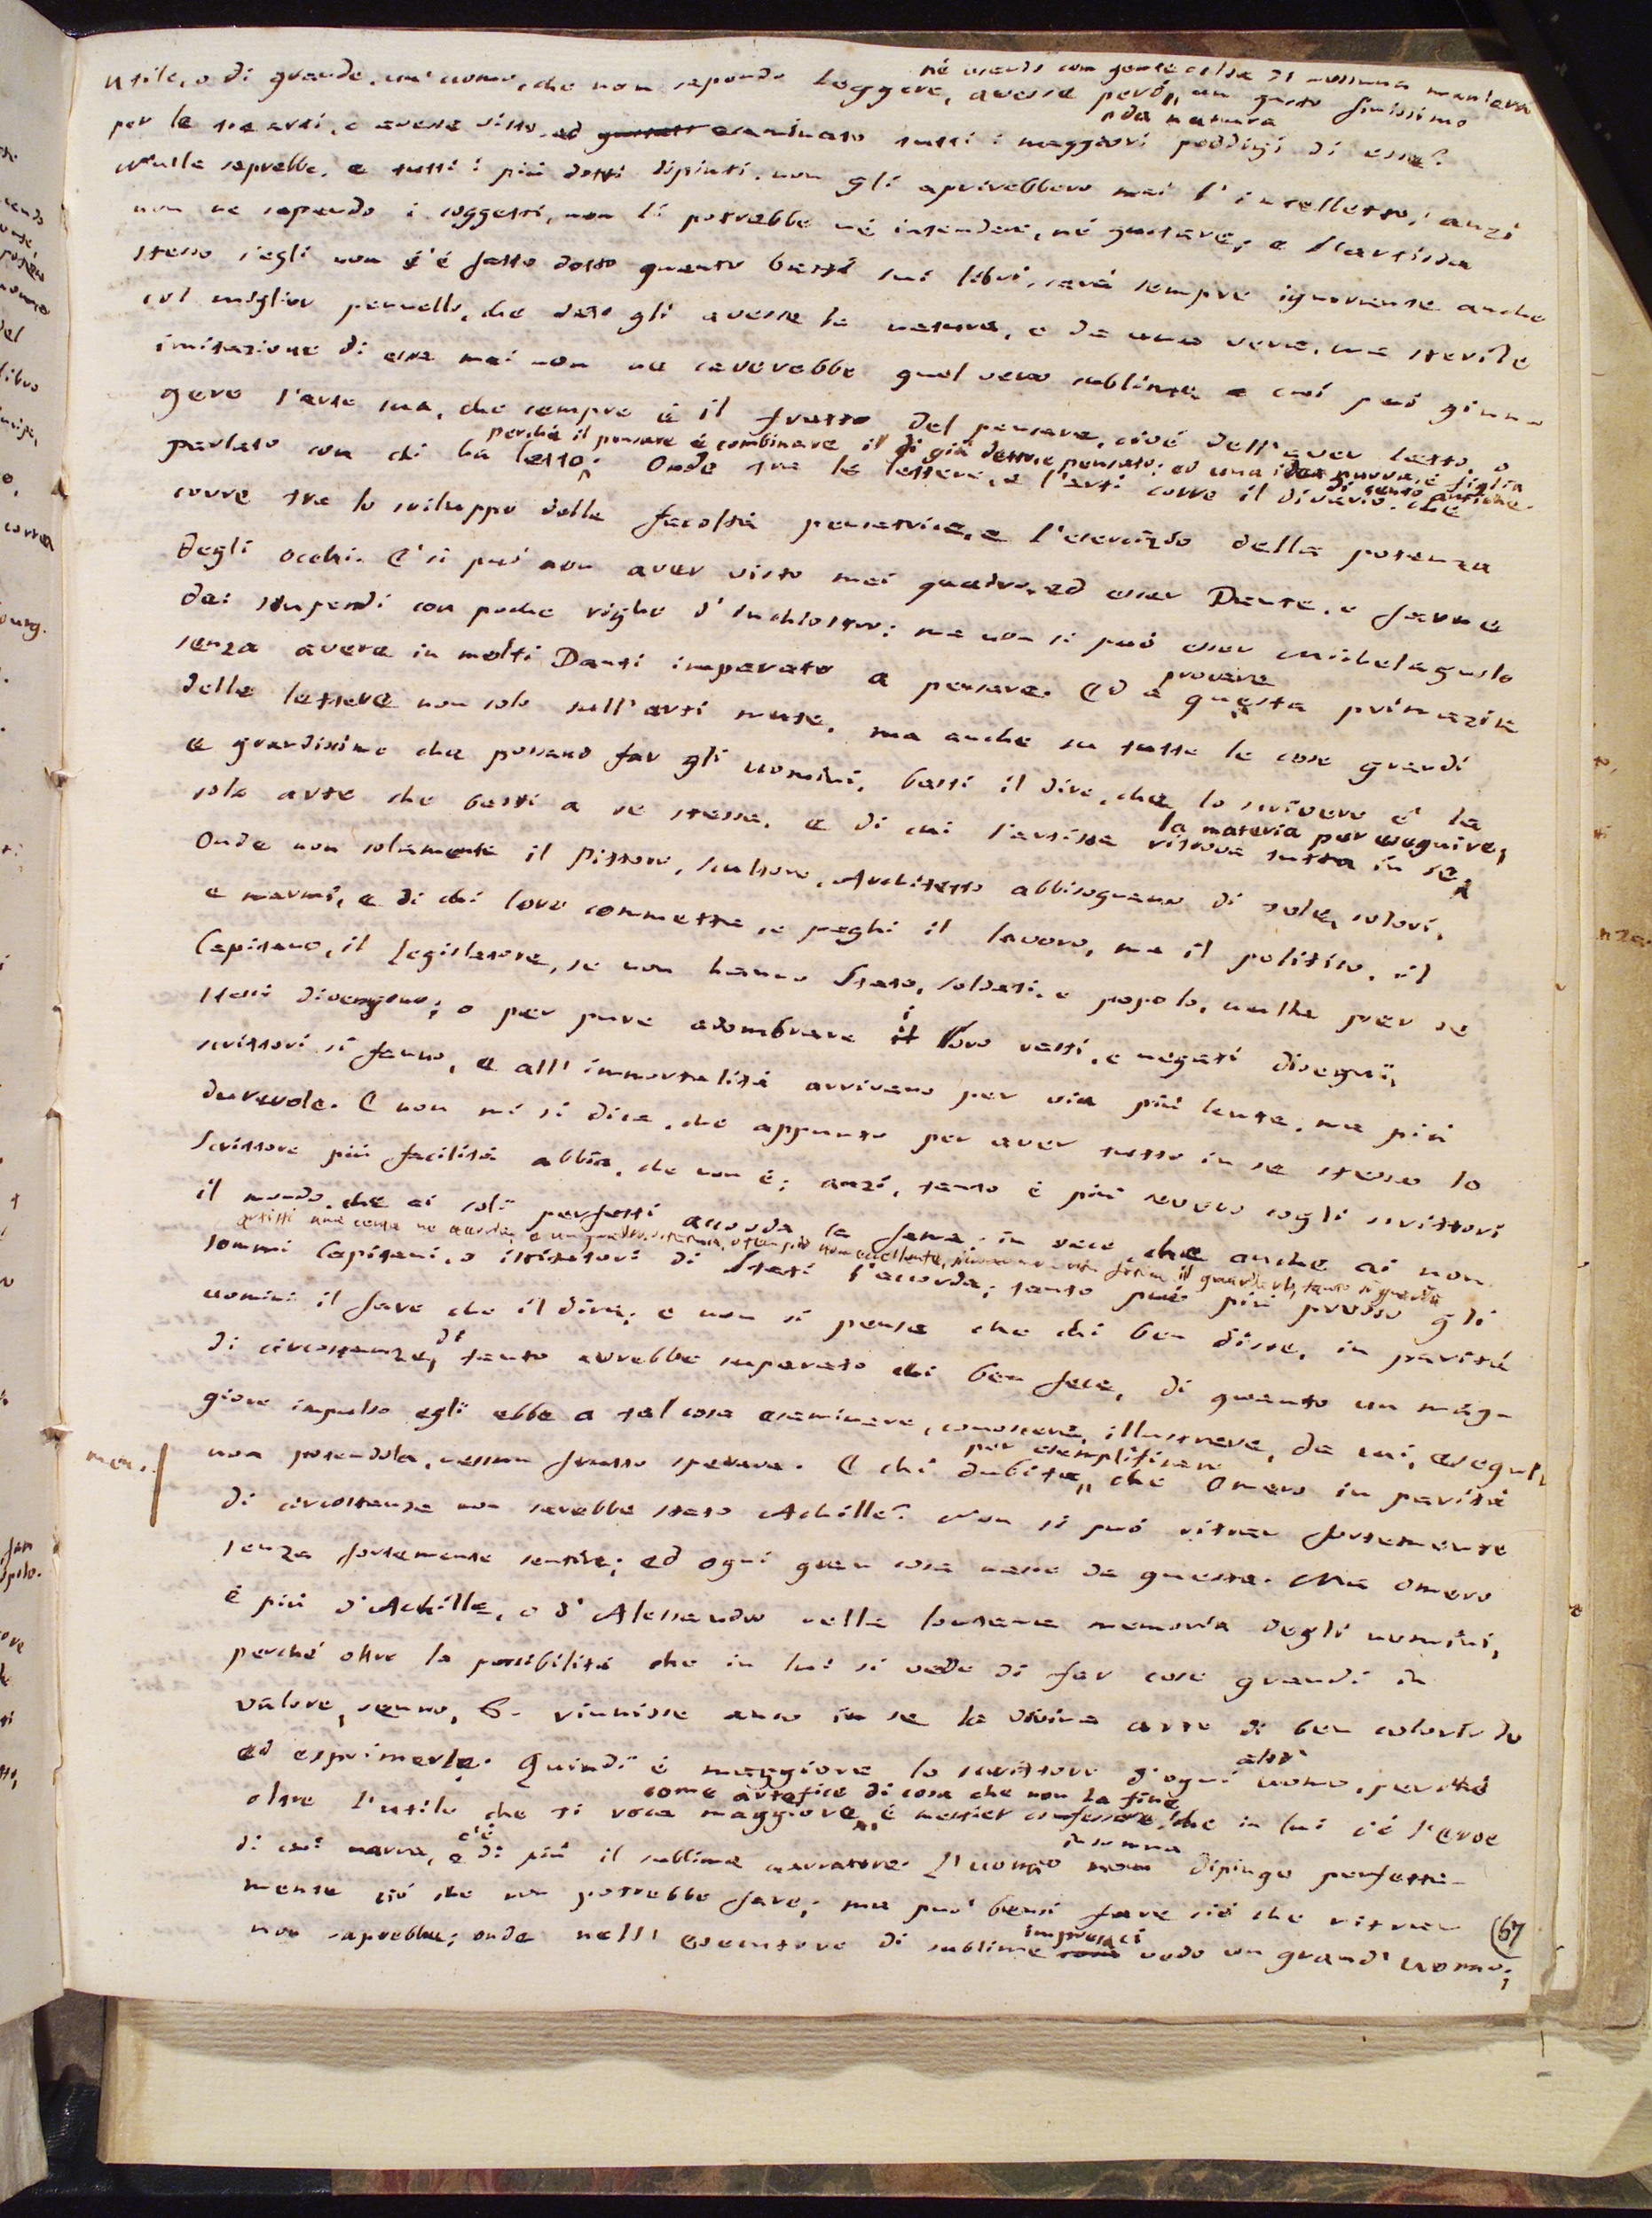 né usando con gente colta di nessuna maniera
utile, o di grande, un' uomo, che non sapendo leggere, avesse però, un gusto finissimo
da natura
per le tre arti, e avesse visto, ed esaminato tutti i maggiori prodigj di esse?
Nulla saprebbe, e tutti i più dotti dipinti, non gli aprirebbero mai l'intelletto; anzi
non ne sapendo i soggetti, non li potrebbe né intendere, né gustare; e l'artista
stesso s'egli non s'è fatto dotto quanto basti sui libri, sarà sempre ignorante anche
col miglior pennello, che dato gli avesse la natura, e da una vera, ma sterile
imitazione di essa mai non ne caverebbe quel vero sublime a cui può giun-
gere l'arte sua, che sempre è il frutto del pensare, cioè dell'aver letto, o
perché il pensare è combinare il di già detto, e pensato; ed una idea nuova, è figlia
di cento antiche.
parlato con chi ha letto; Onde tra le lettere, e l'arti corre il divario, che
corre tra lo sviluppo della facoltà pensatrice, e l'esercizio della potenza
degli occhi. E si può non aver visto mai quadro, ed esser Dante, e farne
dei stupendi con poche righe d'inchiostro; ma non si può esser Michelagnolo
senza avere in molti Danti imparato a pensare. Ed a
provare
questa primazia
delle lettere non solo sull'arti mute, ma anche su tutte le cose grandi
e grandissime che possano far gli uomini, basti il dire, che lo scrivere è la
sola arte che basti a se stessa, e di cui l'artista ritrova tutta in se
la materia per eseguire;
Onde non solamente il Pittore, scultore, Architetto abbisognano di tele, colori,
e marmi, e di chi loro commetta, e paghi il lavoro, ma il politico, il
Capitano, il Legislatore, se non hanno Stato, soldati, e popolo, nulla per se
stessi divengono; o per pure adombrare i loro vasti, e negati disegni,
scrittori si fanno, e all'immortalità arrivano per via più lenta, ma più
durevole. E non mi si dica, che appunto per aver tutto in se stesso lo
Scrittore più facilità abbia, che non è; anzi, tanto è più severo cogli scrittori
il mondo, che ai soli perfetti accorda la fama; in vece che anche ai non
sommi Capitani, o istitutori di Stati l'accorda; tanto può più presso gli
uomini il fare che il dire; e non si pensa che chi ben disse, in parità
di circostanze, di tanto avrebbe superato chi ben fece, di quanto un mag-
giore impulso egli ebbe a tal cosa esaminare, conoscere, illustrare, da cui, eseguir
non potendola, nessun frutto sperava. E chi dubita,
per esemplificare
che Omero in parità
di circostanze non sarebbe stato Achille? Non si può ritrar fortemente
senza fortemente sentire; ed ogni gran cosa nasce da questa. Ma Omero
è più d'Achille, e d'Alessandro nella lontana memoria degli uomini,
perché oltre la possibilità che in lui si vede di far cose grandi in
valore, senno, riunisce anco in se la divina arte di ben colorirle
ed esprimerle. Quindi è maggiore lo scrittore d'ogni
altr'
uomo, perché
come artefice di cosa che non ha fine
oltre l'utile che si reca maggiore, è mestier confessare, che in lui c'è l'eroe
di cui narra, c'è di più il sublime narratore. L'uomo
insomma
non dipinge perfetta-
mente ciò che non potrebbe fare; ma può bensì fare ciò che ritrar
non saprebbe; onde nell' esecutore di sublimi
imprese, ci
vedo un grand' uomo;
67